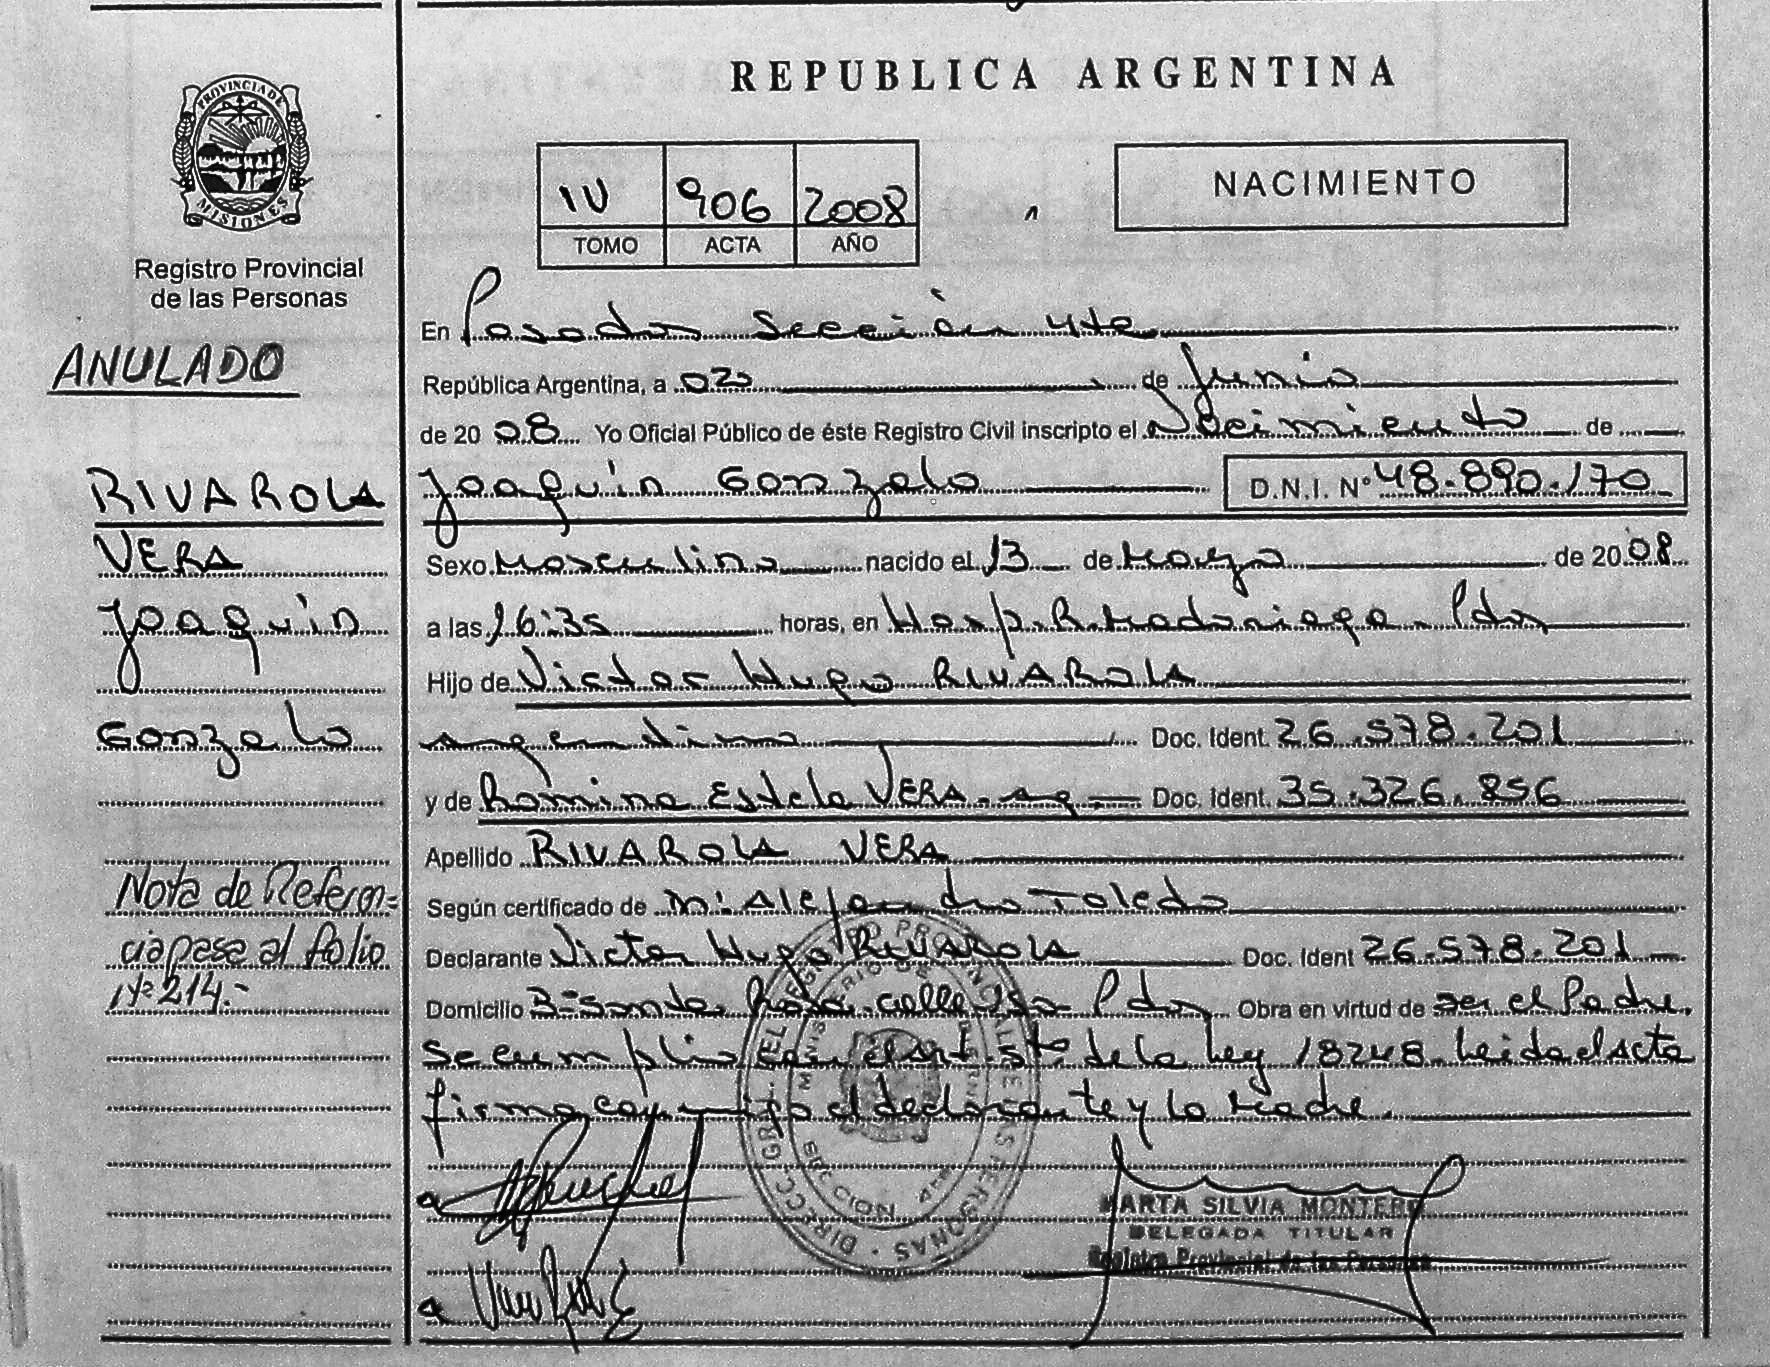 REPUBLICA ARGENTINA
PROVINCIA DE
MISIONES
Registro Provincial
de las Personas
IV 906 2008
TOMO ACTA AÑO
NACIMIENTO
ANULADO
RIVAROLA
VERA
Joaquin
Gonzalo
Nota de Referen=
cia pasa al folio
Nº 214.-
En Posadas Sección 4ta
República Argentina, a 02 de Junio
de 2008 Yo Oficial Público de éste Registro Civil inscripto el Nacimiento de
Joaquin Gonzalo D.N.I. Nº 48.890.170
Sexo Masculino nacido el 13 de Mayo de 2008
a las 16:35 horas, en Hosp. R. Madariaga - Pdas
Hijo de Victor Hugo RIVAROLA
argentino Doc. Ident. 26.578.201
y de Romina Estela VERA - arg. - Doc. Ident. 35.326.856
Apellido RIVAROLA VERA
Según certificado de Alejandro Toledo
Declarante Victor Hugo RIVAROLA Doc. Ident 26.578.201
Domicilio Bº Santa Rosa, calle Pdas Obra en virtud de ser el Padre.
Se cumplio con el art. 5to de la Ley 18248. Leida el Acta
firma conmigo el declarante y la Madre.
MARTA SILVIA MONTERO
DELEGADA TITULAR
Registro Provincial de las Personas